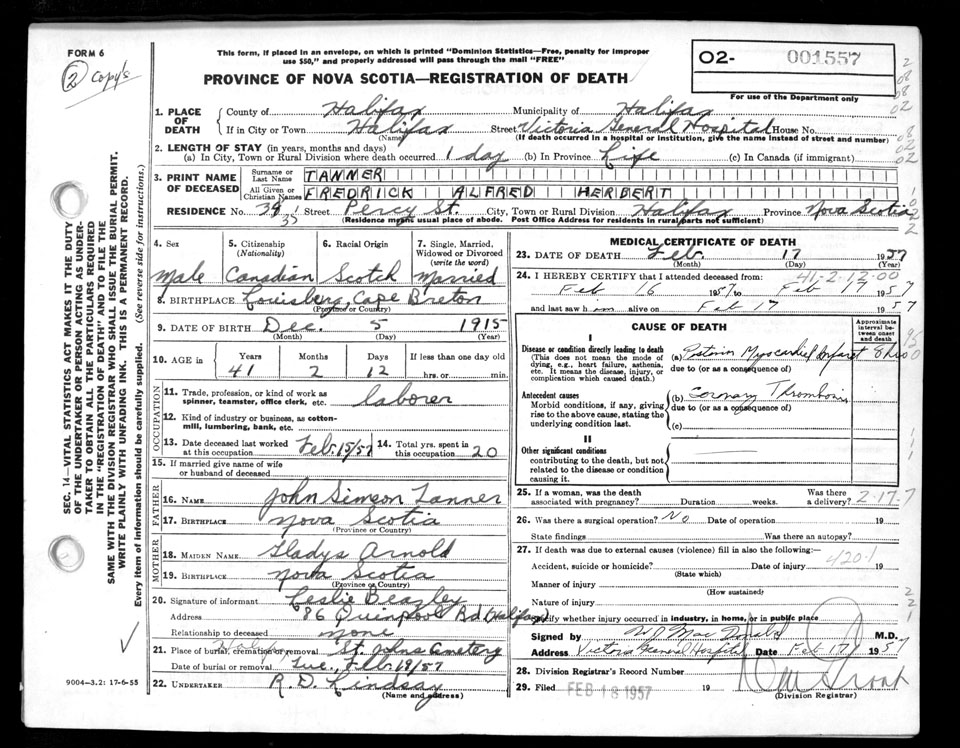 FORM 6
2 Copy's
This form, if placed in an envelope, on which is printed "Dominion Statistics—Free, penalty for improper
use $50," and properly addressed will pass through the mail "FREE"
PROVINCE OF NOVA SCOTIA—REGISTRATION OF DEATH
O2- 001557
For use of the Department only
SEC. 14—VITAL STATISTICS ACT MAKES IT THE DUTY
OF THE UNDERTAKER OR PERSON ACTING AS UNDER-
TAKER TO OBTAIN ALL THE PARTICULARS REQUIRED
IN THE "REGISTRATION OF DEATH" AND TO FILE THE
SAME WITH THE DIVISION REGISTRAR WHO SHALL ISSUE THE BURIAL PERMIT.
WRITE PLAINLY WITH UNFADING INK. THIS IS A PERMANENT RECORD.
Every item of information should be carefully supplied. (See reverse side for instructions.)
1. PLACE OF DEATH
County of Halifax Municipality of Halifax
If in City or Town Halifax Street Victoria General Hospital House No.
(Name) (If death occurred in a hospital or institution, give the name instead of street and number)
2. LENGTH OF STAY (in years, months and days)
(a) In City, Town or Rural Division where death occurred 1 day (b) In Province Life (c) In Canada (if immigrant)
3. PRINT NAME OF DECEASED
Surname or Last Name TANNER
All Given or Christian Names FREDRICK ALFRED HERBERT
RESIDENCE No. 39 Street Percy St. City, Town or Rural Division Halifax Province Nova Scotia
(Residence means usual place of abode. Post Office Address for residents in rural parts not sufficient)
4. Sex
Male
5. Citizenship (Nationality)
Canadian
6. Racial Origin
Scotch
7. Single, Married, Widowed or Divorced (write the word)
Married
8. BIRTHPLACE Louisberg, Cape Breton
(Province or Country)
9. DATE OF BIRTH Dec. 5 1915
(Month) (Day) (Year)
10. AGE in Years Months Days If less than one day old
41 2 12 hrs. or min.
OCCUPATION
11. Trade, profession, or kind of work as
spinner, teamster, office clerk, etc. laborer
12. Kind of industry or business, as cotton-
mill, lumbering, bank, etc.
13. Date deceased last worked at this occupation Feb. 15/57
14. Total yrs. spent in this occupation 20
15. If married give name of wife
or husband of deceased
FATHER
16. NAME John Simeon Tanner
17. BIRTHPLACE Nova Scotia
(Province or Country)
MOTHER
18. MAIDEN NAME Gladys Arnold
19. BIRTHPLACE Nova Scotia
(Province or Country)
20. Signature of informant Leslie Beazley
Address 86 Quinpool Rd (Halifax)
Relationship to deceased none
21. Place of burial, cremation or removal St. Johns Cemetery
Date of burial or removal Tue, Feb. 19/57
22. UNDERTAKER R. D. Lindsay
(Name and address)
9004-3.2: 17-6-55
MEDICAL CERTIFICATE OF DEATH
23. DATE OF DEATH Feb. 17 1957
(Month) (Day) (Year)
41-2-12-00
24. I HEREBY CERTIFY that I attended deceased from:
Feb 16 1957 to Feb 17 1957
and last saw him alive on Feb 17 1957
CAUSE OF DEATH
Approximate interval between onset and death
I
Disease or condition directly leading to death
(This does not mean the mode of
dying, e.g., heart failure, asthenia,
etc. It means the disease, injury, or
complication which caused death.)
(a) Myocardial Infarct
due to (or as a consequence of)
Antecedent causes
Morbid conditions, if any, giving
rise to the above cause, stating the
underlying condition last.
(b) Coronary Thrombosis
due to (or as a consequence of)
(c)
II
Other significant conditions
contributing to the death, but not
related to the disease or condition
causing it.
25. If a woman, was the death
associated with pregnancy? Duration weeks. Was there a delivery?
2-17-7
26. Was there a surgical operation? No Date of operation 19
State findings Was there an autopsy?
27. If death was due to external causes (violence) fill in also the following:—
420.1
Accident, suicide or homicide? Date of injury 19
(State which)
Manner of injury
(How sustained)
Nature of injury
Specify whether injury occurred in industry, in home, or in public place
Signed by W J MacDonald M.D.
Address Victoria General Hospital Date Feb 17 1957
28. Division Registrar's Record Number
29. Filed FEB 18 1957 19
(Division Registrar)